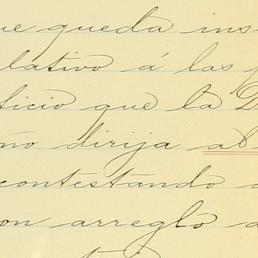 ue queda ins
lativo á las
ficio que la D
ño dirija al
contestando
on arreglo a